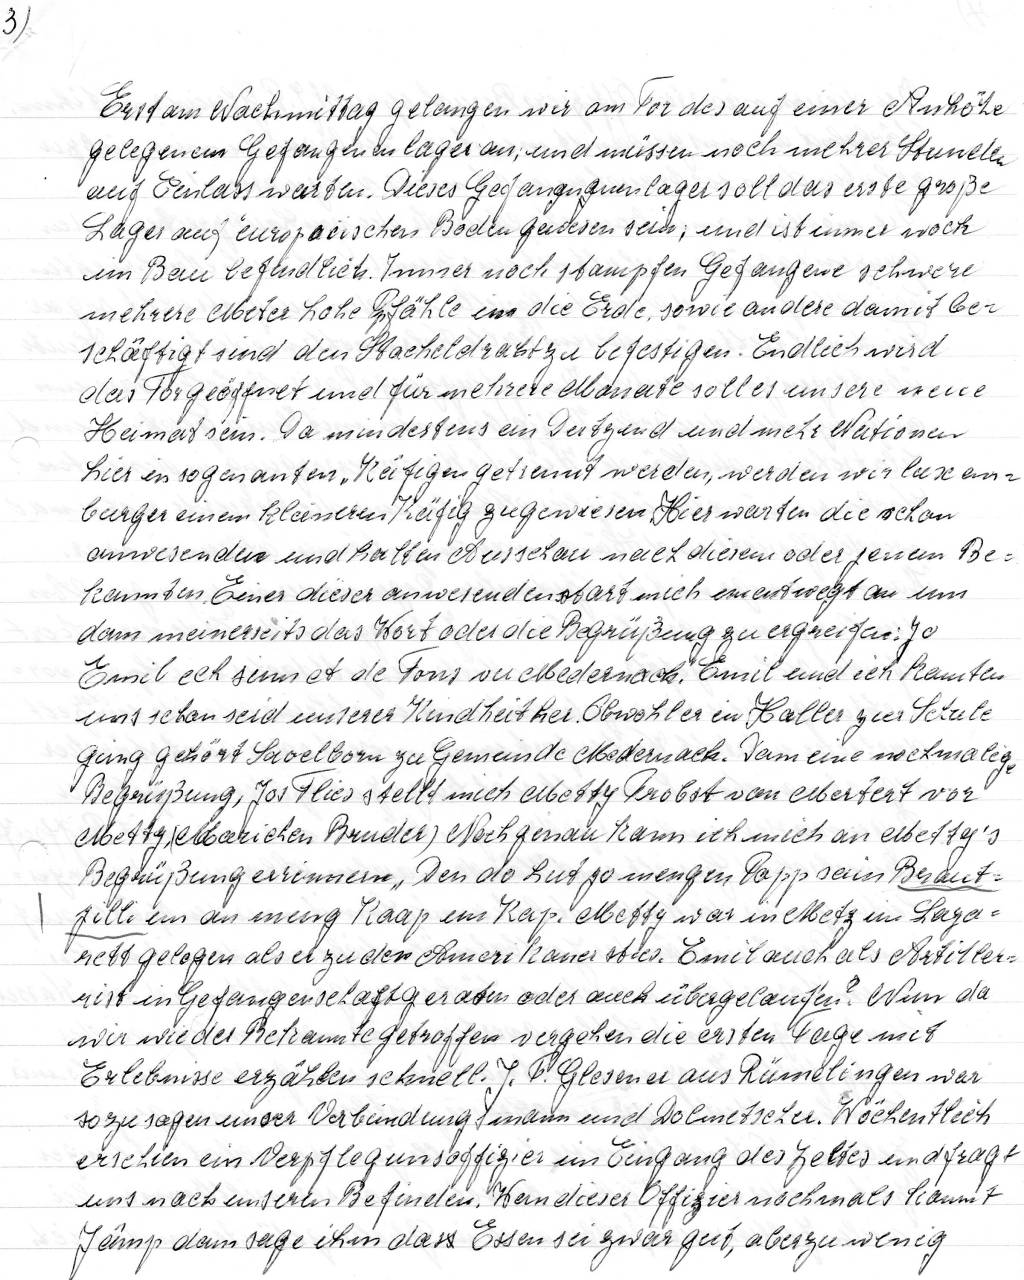 3)
Erst am Nachmittag gelangen wir am Tor des auf einer Anhöhe
gelegenem Gefangenenlager an; und müssen noch mehrer Stunden
auf Einlass warten. Dieses Gefangenenlager soll das erste große
Lager auf europäischen Boden gewesen sein; und ist immer noch
im Bau befindlich. Immer noch stampfen Gefangene schwere
mehrere Meter hohe Pfähle in die Erde, sowie andere damit be-
schäftigt sind den Stacheldraht zu befestigen. Endlich wird
das Tor geöffnet und für mehrere Monate soll es unsere neue
Heimat sein. Da mindestens ein Dutzend und mehr Nationen
hier in sogenanten „Käfigen getrennt werden, werden wir luxem=
burger einem kleineren Käfig zugewiesen. Hier warten die schon
anwesenden und halten Ausschau nach diesem oder jenem Be=
kannten. Einer dieser anwesenden start mich unentwegt an um
dann meinerseits das Wort oder die Begrüßung zu ergreifen: Jo
Emil ech sinn et de Fons vu Medernach. Emil und ich kannten
uns schon seid unserer Kindheit her. Obwohl er in Haller zur Schule
ging gehört Savelborn zu Gemeinde Medernach. Dann eine nochmalige
Begrüßung, Jos Flies stellt mich Metty Probst von Mertert vor
Metty, (Marichen Bruder) Noch genau kann ich mich an Metty's
Begrüßung errinnern „ Den do huet jo mengen Papp sain Braut=
zilli un an meng Kaap um Kap. Metty war in Metz im Laza=
rett gelegen als er zu den Amerikaner sties. Emil auch als Artiller=
rist in Gefangenschaft geraten oder auch übergelaufen? Nun da
wir wieder Bekannte getroffen vergehen die ersten Tage mit
Erlebnisse erzählen schnell. J. P. Glesener aus Rümelingen war
sozusagen unser Verbindungsmann und Dolmetscher. Wöchentlich
erschien ein Verpflegunsoffizier im Eingang des Zeltes und fragt
uns nach unseren Befinden. Wen dieser Offizier nochmals kommt
Jämp dann sage ihm dass Essen sei zwar gut, aber zu wenig